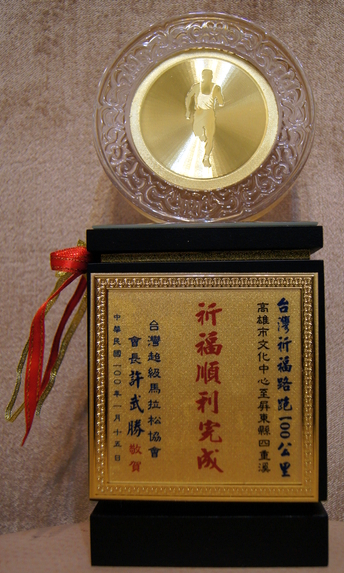 台灣祈福路跑100公里
高雄市文化中心至屏東縣四重溪
祈福順利完成
台灣超級馬拉松協會
會長許武勝敬賀
中華民國一00年一月十五日